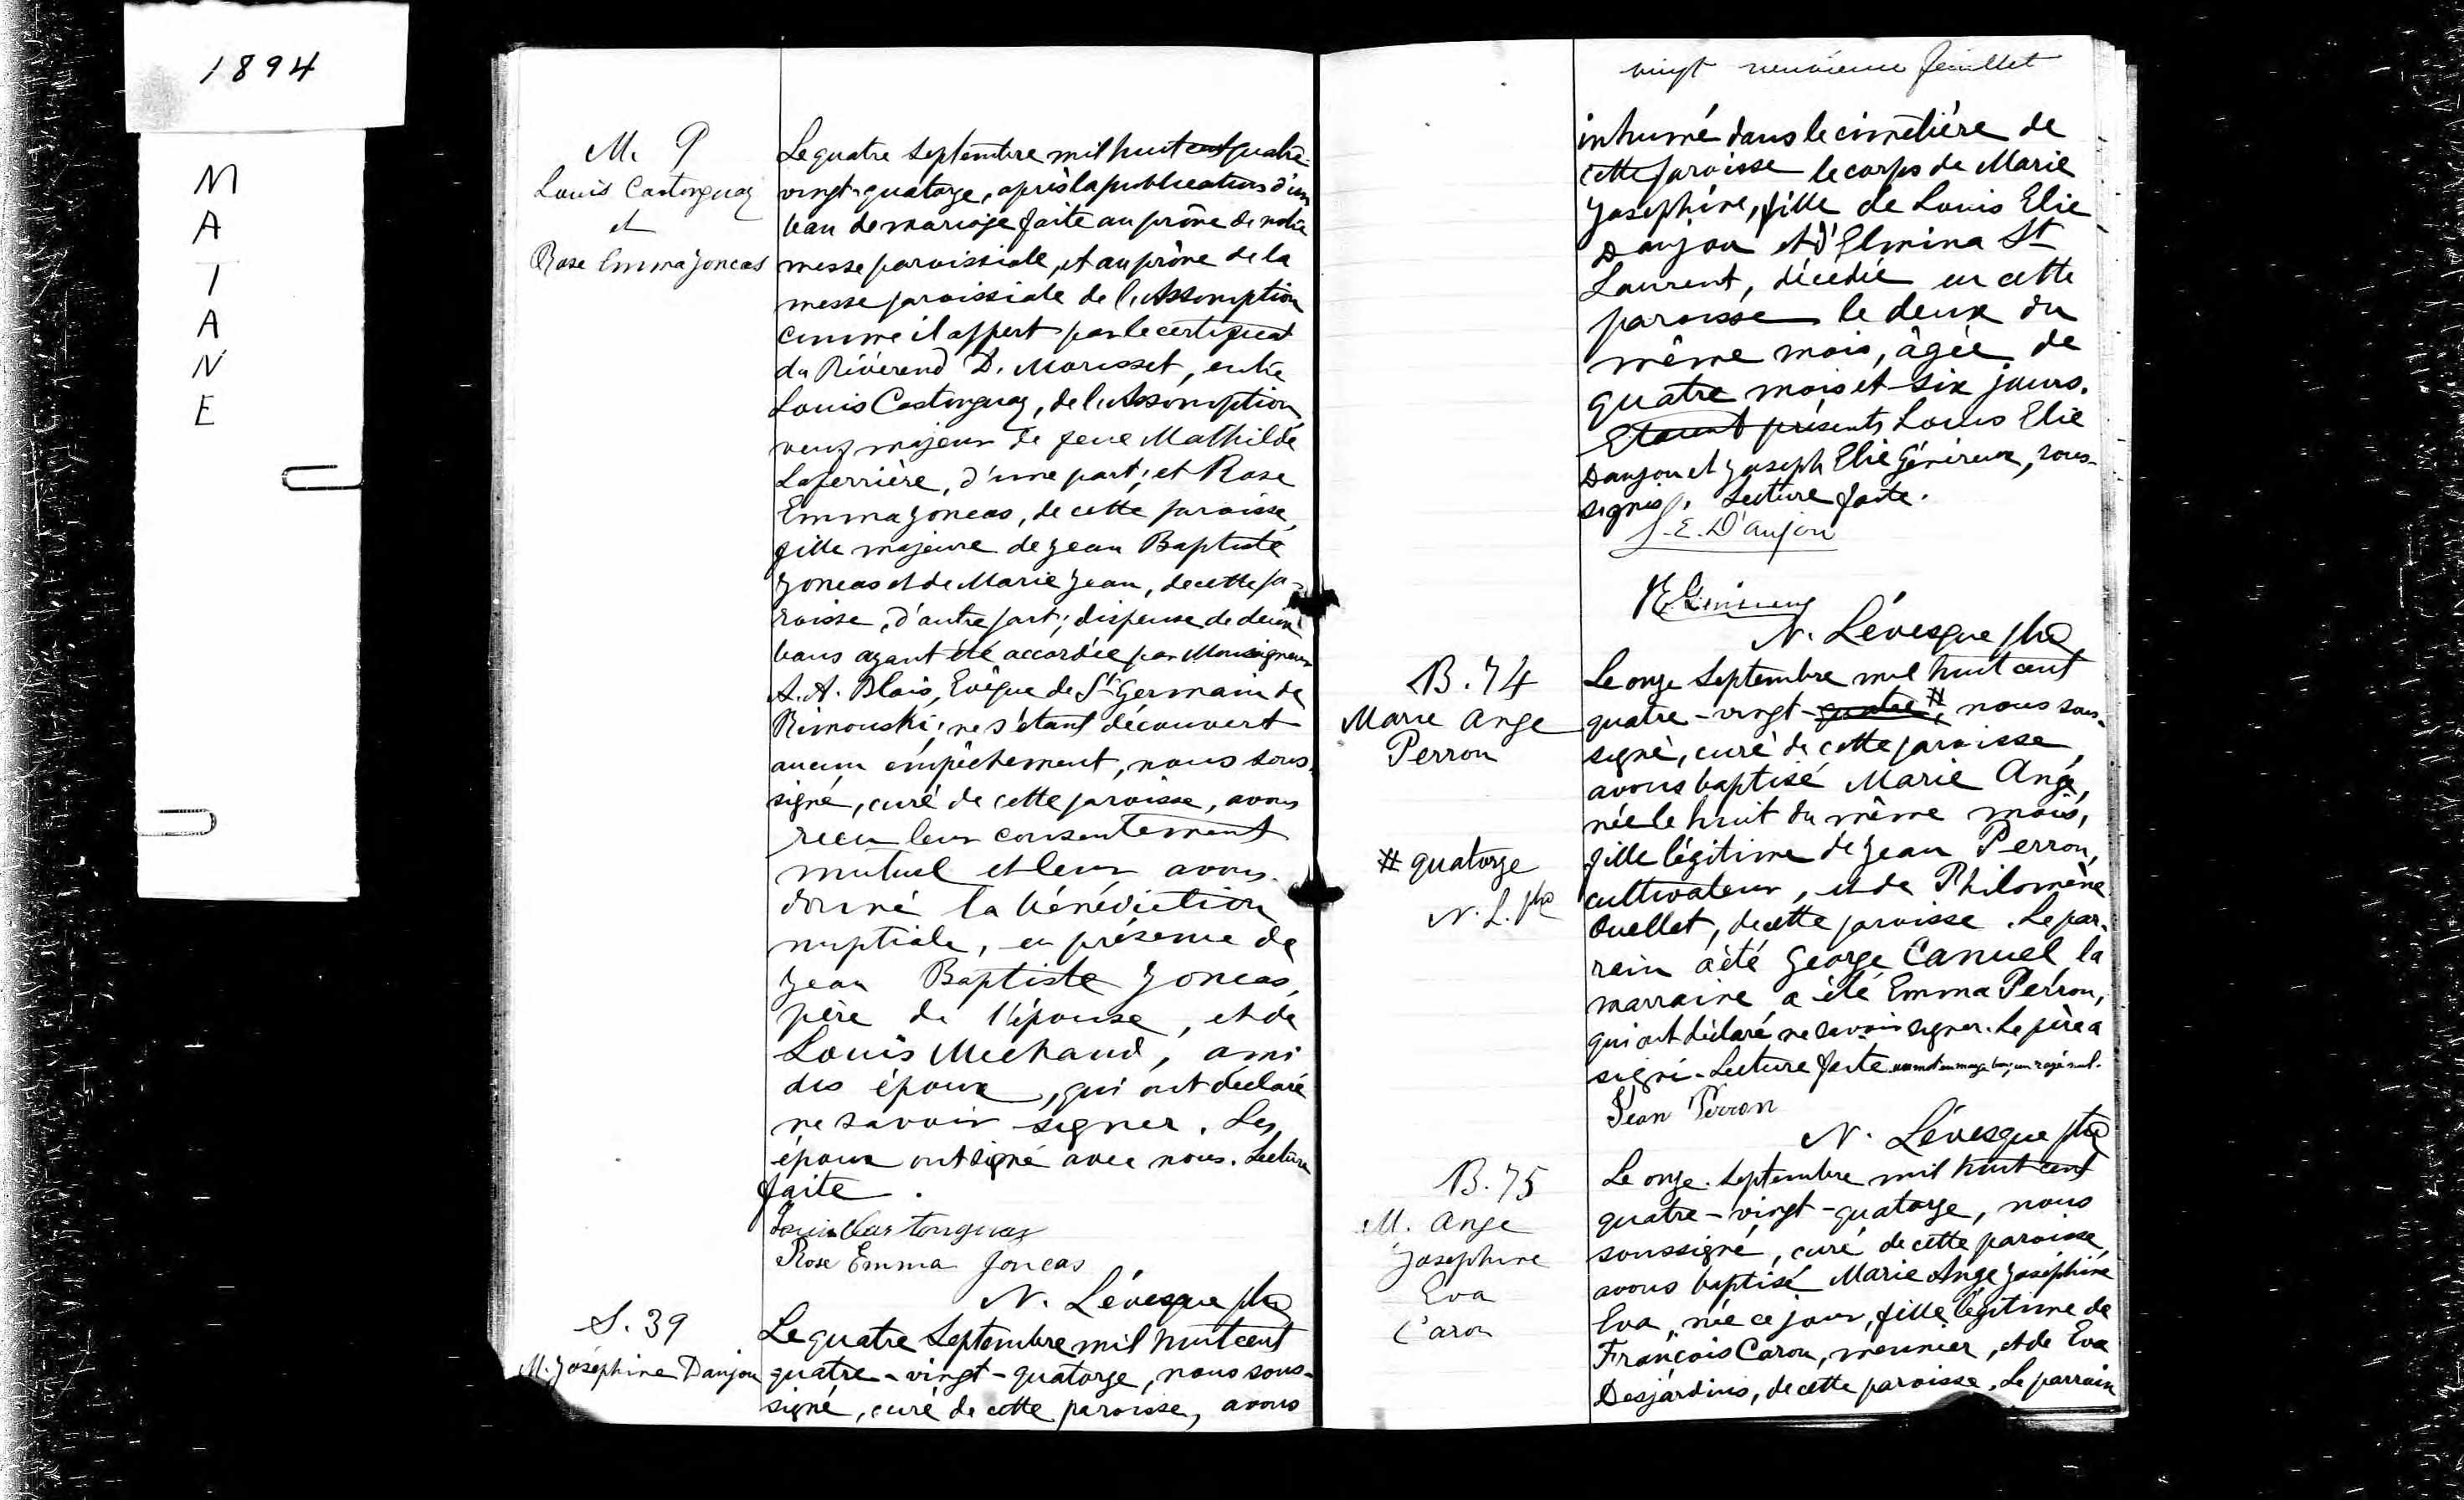 1894
M
A
T
A
N
E
M. 9
Louis Castonguay
et
Rose Emma Joncas
Le quatre Septembre mil huit cent quatre-
vingt-quatorze, après la publication d'un
ban de mariage faite au prône de notre
messe paroissiale, et au prône de la
messe paroissiale de l'Assomption
comme il appert par le certificat
du Révérend D. Morisset, entre
Louis Castonguay, de l'Assomption,
veuf majeur de feue Mathilde
Laferrière, d'une part; et Rose
Emma Joncas, de cette paroisse,
fille majeure de Jean Baptiste
Joncas et de Marie Jean, de cette pa-
roisse, d'autre part; dispense de deux
bans ayant été accordée par Monseigneur
A. A. Blais, Evêque de St Germain de
Rimouski; ne s'étant découvert
aucun empêchement, nous sous-
signé, curé de cette paroisse, avons
reçu leur consentement
mutuel et leur avons
donné la bénédiction
nuptiale, en présence de
Jean Baptiste Joncas,
père de l'épouse, et de
Louis Michaud, ami
des époux, qui ont déclaré
ne savoir signer. Les
époux ont signé avec nous. Lecture
faite.
Louis Castonguay
Rose Emma Joncas
N. Lévesque ptre
S. 39
M. Joséphine Danjou
Le quatre Septembre mil huit cent
quatre-vingt-quatorze, nous sous-
signé, curé de cette paroisse, avons
vingt neuvième feuillet
inhumé dans le cimetière de
cette paroisse le corps de Marie
Joséphine, fille de Louis Elie
Danjou et d'Elmina St
Laurent, décédée en cette
paroisse le deux du
même mois, âgée de
quatre mois et six jours.
Etaient présents Louis Elie
Danjou et Joseph Elie Généreux, sous-
signés. Lecture faite.
L. E. D'anjou
N. Lévesque ptre
B. 74
Marie Ange
Perron
# quatorze
N. L. ptre
Le onze Septembre mil huit cent
quatre-vingt-quatre #, nous sous-
signé, curé de cette paroisse,
avons baptisé Marie Ange,
née le huit du même mois,
fille légitime de Jean Perron,
cultivateur, et de Philomène
Ouellet, de cette paroisse. Le par-
rain a été George Canuel la
marraine a été Emma Perron,
qui ont déclaré ne savoir signer. Le père a
signé. Lecture faite. un mot en marge bon, un rayé nul.
Jean Perron
N. Lévesque ptre
B. 75
M. Ange
Joséphine
Eva
Caron
Le onze Septembre mil huit cent
quatre-vingt-quatorze, nous
soussigné, curé de cette paroisse,
avons baptisé Marie Ange Joséphine
Eva, née ce jour, fille légitime de
François Caron, meunier, et de Eva
Desjardins, de cette paroisse. Le parrain